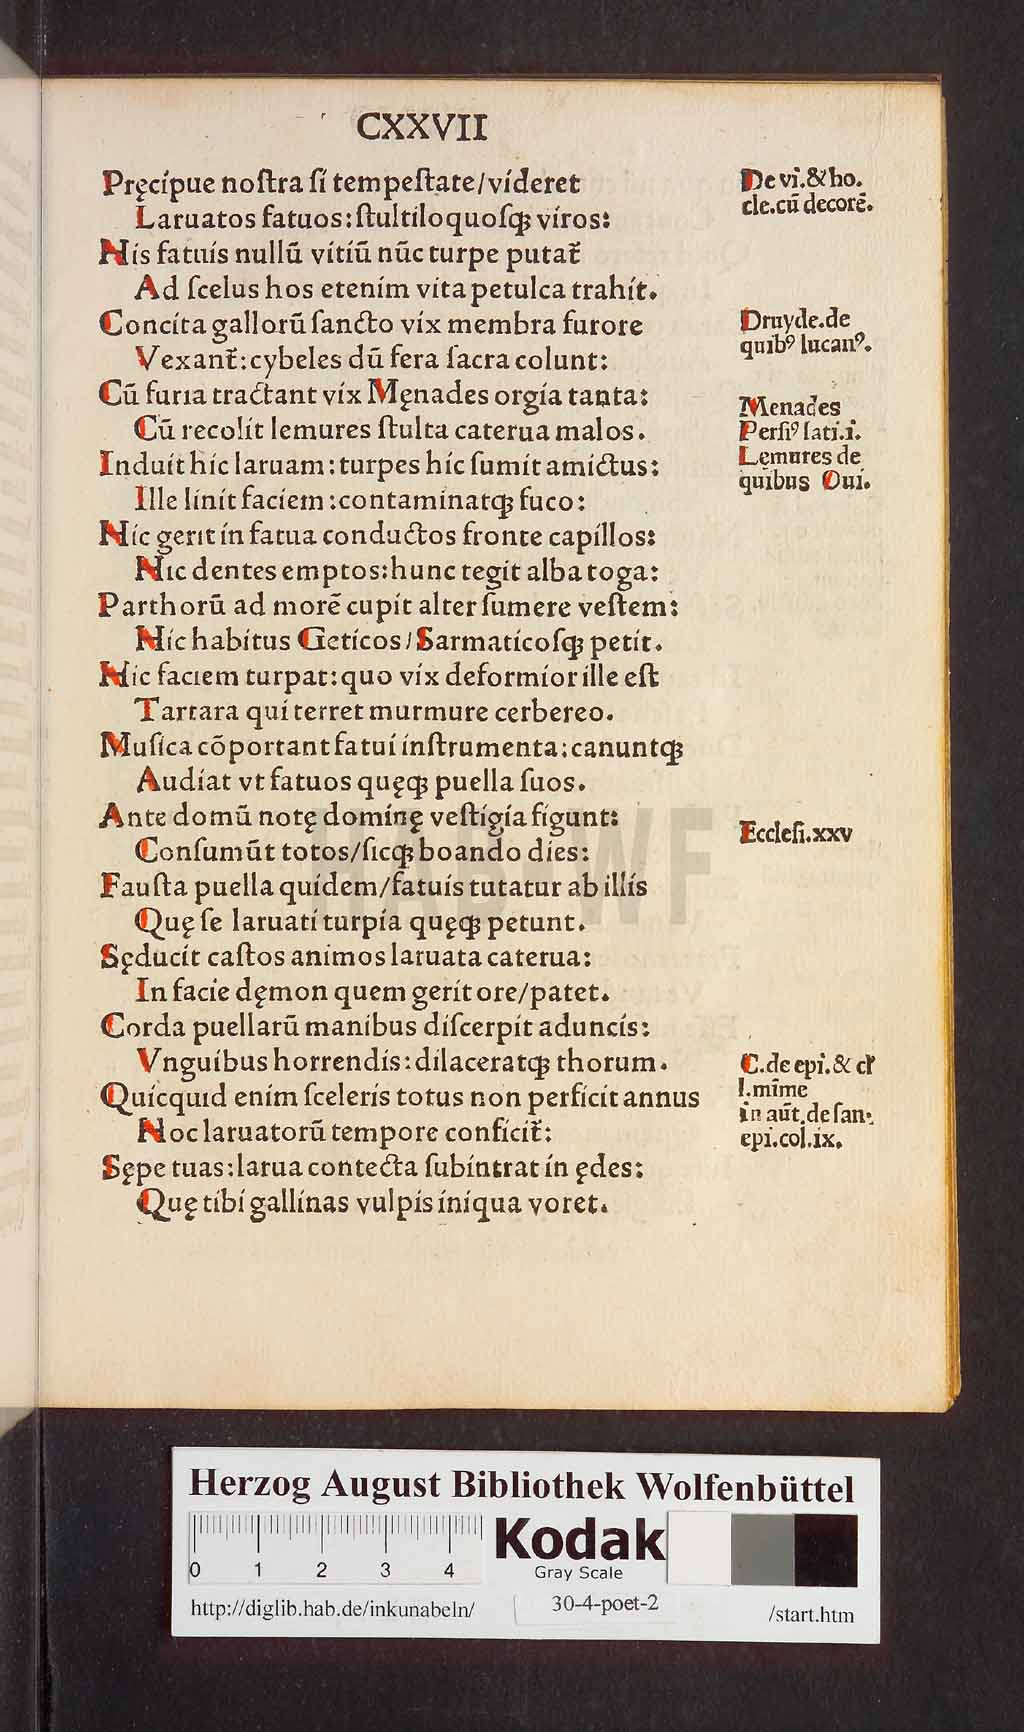 CXXVII
Pręcipue noſtra ſi tempeſtate/videret
Laruatos fatuos: ſtultiloquoſqꝫ viros:
His fatuis nullū vitiū nūc turpe putat᷑
Ad ſcelus hos etenim vita petulca trahit.
Concita gallorū ſancto vix membra furore
Vexant᷑: cybeles dū fera ſacra colunt:
Cū furia tractant vix Męnades orgia tanta:
Cū recolit lemures ſtulta caterua malos.
Induit hic laruam: turpes hic ſumit amictus:
Ille linit faciem: contaminatqꝫ fuco:
Hic gerit in fatua conductos fronte capillos:
Hic dentes emptos: hunc tegit alba toga:
Parthorū ad morē cupit alter ſumere veſtem:
Hic habitus Geticos/Sarmaticoſqꝫ petit.
Hic faciem turpat: quo vix deformior ille eſt
Tartara qui terret murmure cerbereo.
Muſica cōportant fatui inſtrumenta: canuntqꝫ
Audiat vt fatuos quęqꝫ puella ſuos.
Ante domū notę dominę veſtigia figunt:
Conſumūt totos/ſicqꝫ boando dies:
Fauſta puella quidem/fatuis tutatur ab illis
Quę ſe laruati turpia quęqꝫ petunt.
Sęducit caſtos animos laruata caterua:
In facie dęmon quem gerit ore/patet.
Corda puellarū manibus diſcerpit aduncis:
Vnguibus horrendis: dilaceratqꝫ thorum.
Quicquid enim ſceleris totus non perficit annus
Hoc laruatorū tempore conficit᷑:
Sępe tuas: larua contecta ſubintrat in ędes:
Quę tibi gallinas vulpis iniqua voret.
De vi. & ho.
cle. cū decorē.
Druyde. de
quibꝰ lucanꝰ.
Menades
Perſiꝰ ſati. i.
Lemures de
quibus Oui.
Eccleſi. xxv
C. de epi. & cł
l. mīme
in aūt. de ſan.
epi. col. ix.
HAB WF
Herzog August Bibliothek Wolfenbüttel
0 1 2 3 4
Kodak
Gray Scale
http://diglib.hab.de/inkunabeln/
30-4-poet-2
/start.htm